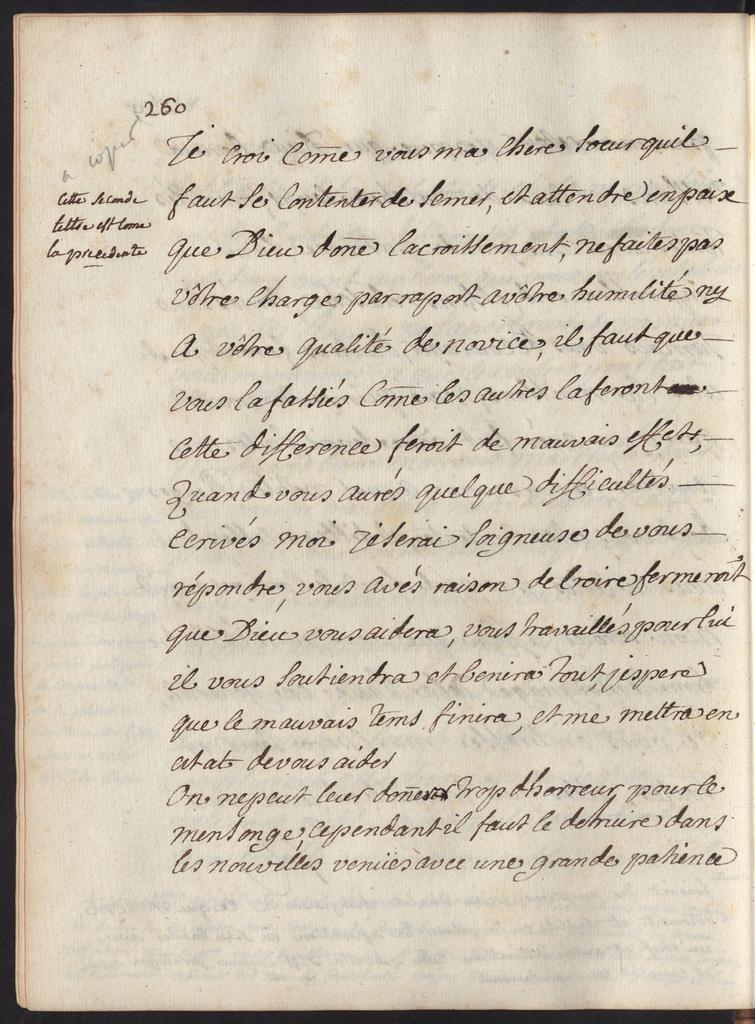 260
a copier
Cette seconde
lettre est come
la precedente
Je croi Come vous ma chere soeur quil
faut se Contenter de semer, et attendre en paix
que Dieu done lacroissement, ne faites pas
vôtre charge par raport a vôtre humilité ny
A vôtre qualité de novice, il faut que
vous la fassiés Come les autres la feront
Cette difference feroit de mauvais effets,
Quand vous aurés quelque difficultés
ecrivés moi je serai soigneuse de vous
répondre, vous avés raison de croire fermem̄t
que Dieu vous aidera, vous travaillés pour lui
il vous soutiendra et benira tout, jespere
que le mauvais tems finira, et me mettra en
etat de vous aider
On ne peut leur doner trop dhorreur, pour le
mensonge, cependant il faut le detruire dans
les nouvelles venües avec une grande patience